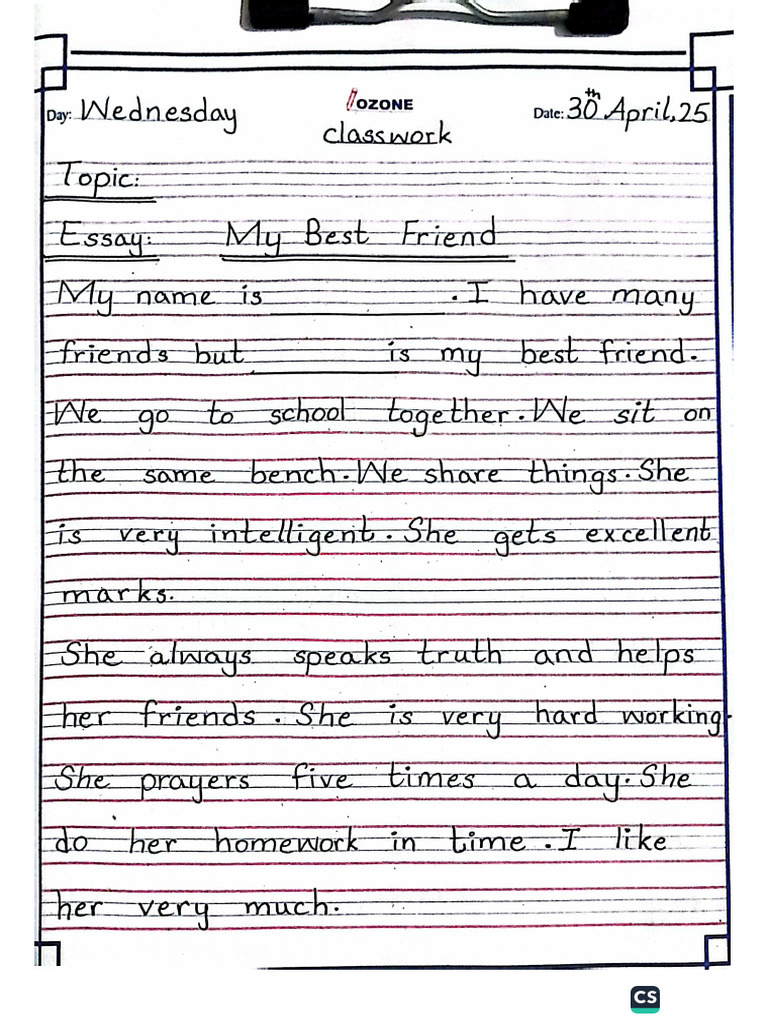 Day: Wednesday OZONE Date: 30th April, 25
classwork
Topic:
Essay: My Best Friend
My name is ____________. I have many
friends but __________ is my best friend.
We go to school together. We sit on
the same bench. We share things. She
is very intelligent. She gets excellent
marks.
She always speaks truth and helps
her friends. She is very hard working.
She prayers five times a day. She
do her homework in time. I like
her very much.
CS